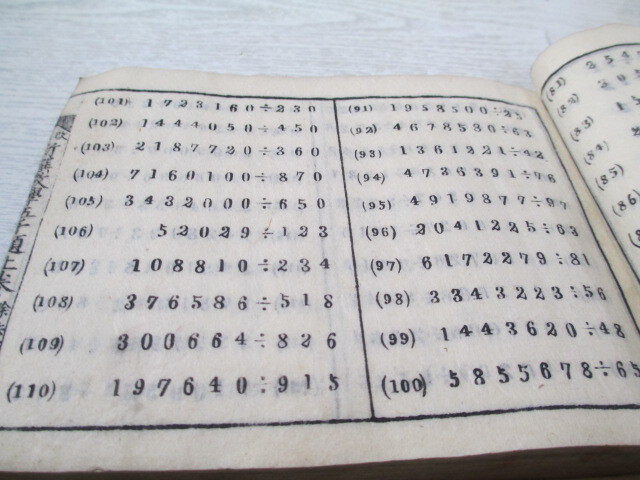 (101) 1723160÷230
(102) 1444050÷450
(103) 2187720÷360
(104) 7160100÷870
(105) 3432000÷650
(106) 52029÷123
(107) 108810÷234
(108) 376586÷518
(109) 300664÷826
(110) 197640÷915
(91) 1958500÷25
(92) 4678530÷63
(93) 1361221÷42
(94) 4736391÷76
(95) 4919877÷97
(96) 2041225÷63
(97) 6172279÷81
(98) 3343223÷56
(99) 1443620÷48
(100) 5855678÷65
(81)
(82)
(83)
(84)
(85)
(86)